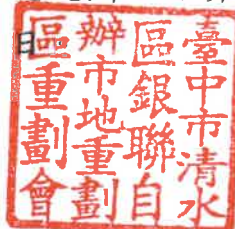 臺中市清水
區銀聯自
辦市地重劃
區重劃會
日